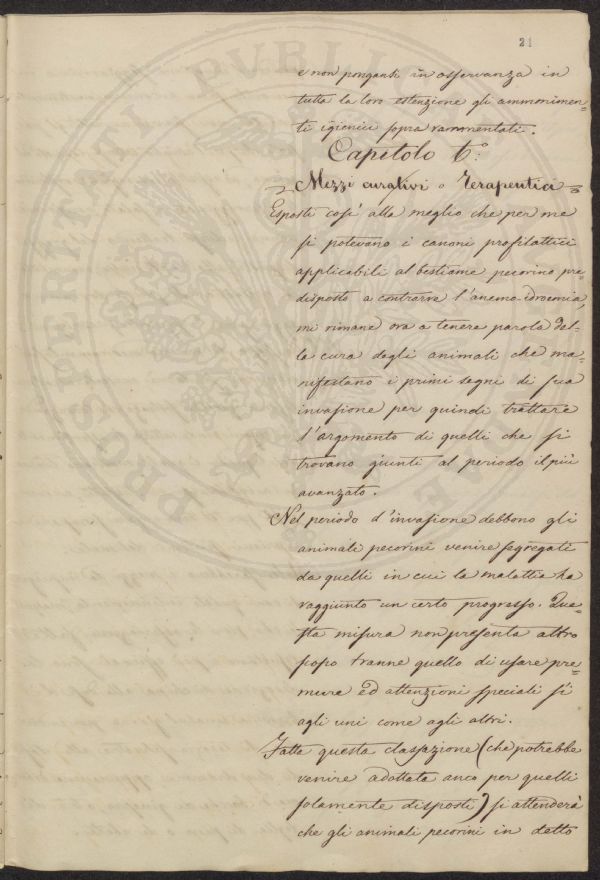 21
e non pongansi in osservanza in
tutta la loro estenzione gli ammonimen=
ti igienici sopra rammentati.
Capitolo 6.º
Mezzi curativi o Terapeutici
Esposti così alla meglio che per me
si potevano i canoni profilattici
applicabili al bestiame pecorino pre=
disposto a contrarre l'anemo-idroemia,
mi rimane ora a tenere parola del=
la cura degli animali che ma=
nifestano i primi segni di sua
invasione per quindi trattare
l'argomento di quelli che si
trovano giunti al periodo il più
avanzato.
Nel periodo d'invasione debbono gli
animali pecorini venire segregati
da quelli in cui la malattia ha
raggiunto un certo progresso. Que=
sta misura non presenta altro
sopo tranne quello di usare pre=
mure ed attenzioni speciali sì
agli uni come agli altri.
Fatta questa classazione (che potrebbe
venire adottata anco per quelli
solamente disposti) si attenderà
che gli animali pecorini in detto
PROSPERITATI PVBLICAE